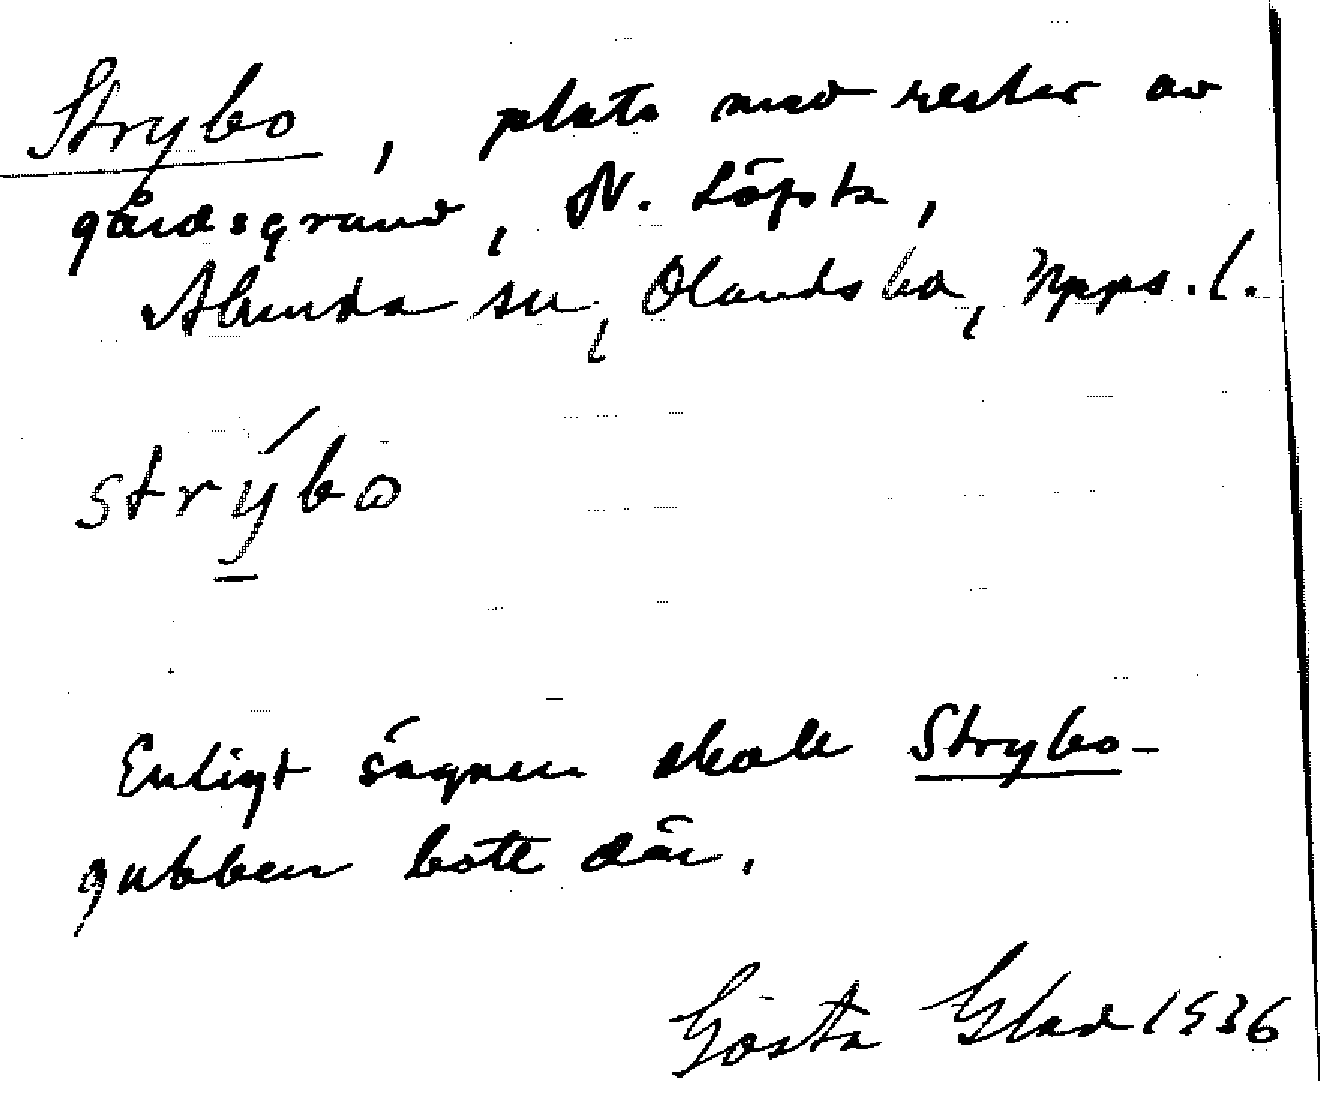 Strybo, plats med rester av
gårdsgrund, N. Löfsta,
Alunda sn, Olands hd, Upps. l.
strýbo
Enligt sägnen skall Strybo-
gubben bott där.
Gösta Glad 1936